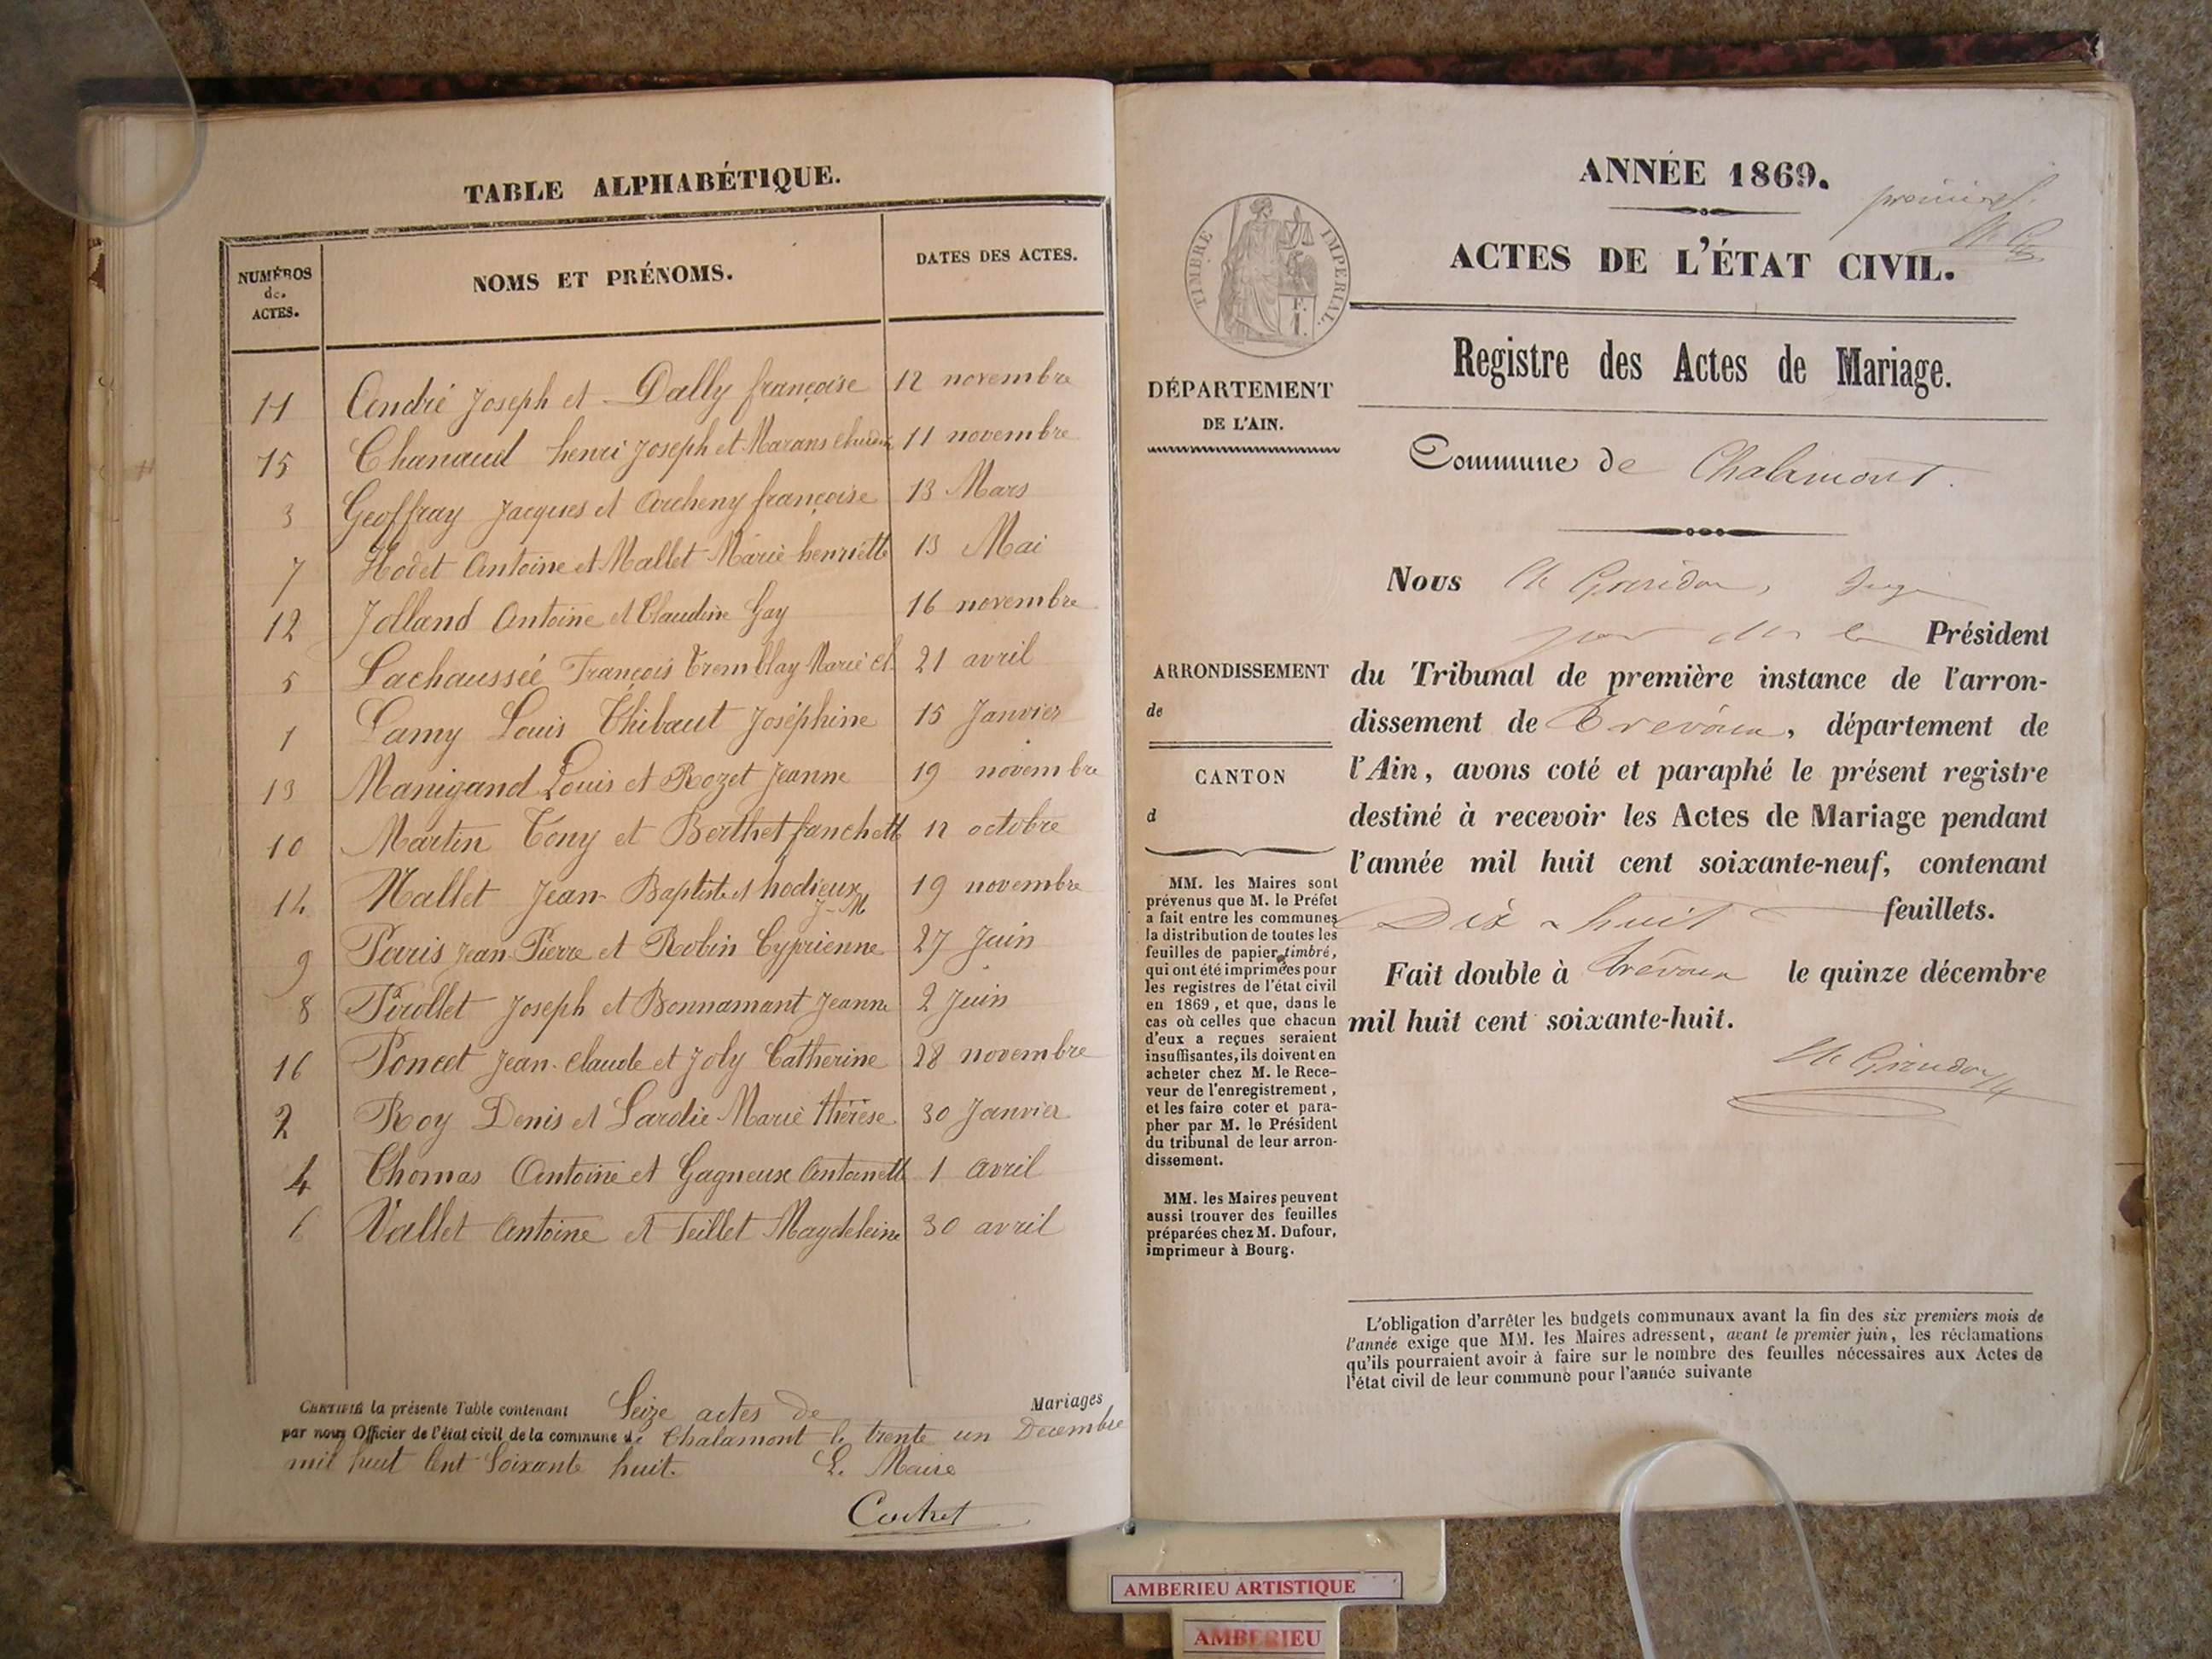 TABLE ALPHABÉTIQUE.
NUMÉROS des ACTES.
NOMS ET PRÉNOMS.
DATES DES ACTES.
11 André Joseph et Dally françoise 12 novembre
15 Chanaud henri Joseph et Marans 11 novembre
3 Geoffray Jacques et Archeny françoise 13 Mars
7 Hodet Antoine et Mallet Marie henriette 13 Mai
12 Jolland Antoine et Claudine Gay 16 novembre
5 Lachaussée François Tremblay Marie et 21 avril
1 Lamy Louis Thibaut Joséphine 15 Janvier
13 Manigand Louis et Rozet Jeanne 19 novembre
10 Martin Tony et Berthet fanchette 12 octobre
14 Mallet Jean-Baptiste et hodieux J-M 19 novembre
9 Paris Jean-Pierre et Robin Cyprienne 27 Juin
8 Pirollet Joseph et Bonnamant Jeanne 2 Juin
16 Poncet Jean-Claude et Joly Catherine 28 novembre
2 Roy Denis et Lardie Marie thérèse 30 Janvier
4 Thomas Antoine et Gagneux Antoinette 1 avril
6 Vallet Antoine et Teillet Magdeleine 30 avril
CERTIFIÉ la présente Table contenant Seize actes de Mariages
par nous Officier de l'état civil de la commune de Chalamont le trente un Decembre
mil huit Cent Soixante huit. Le Maire
Cochet
ANNÉE 1869.
ACTES DE L'ÉTAT CIVIL.
TIMBRE IMPERIAL.
Registre des Actes de Mariage.
DÉPARTEMENT
DE L'AIN.
Commune de Chalamont.
Nous Ch Girıdon, Juge
Président
ARRONDISSEMENT
de
du Tribunal de première instance de l'arron-
dissement de Trévoux, département de
CANTON
d
l'Ain, avons coté et paraphé le présent registre
destiné à recevoir les Actes de Mariage pendant
l'année mil huit cent soixante-neuf, contenant
Dix-huit feuillets.
Fait double à Trévoux le quinze décembre
mil huit cent soixante-huit.
MM. les Maires sont
prévenus que M. le Préfet
a fait entre les communes
la distribution de toutes les
feuilles de papier timbré,
qui ont été imprimées pour
les registres de l'état civil
en 1869, et que, dans le
cas où celles que chacun
d'eux a reçues seraient
insuffisantes, ils doivent en
acheter chez M. le Rece-
veur de l'enregistrement,
et les faire coter et para-
pher par M. le Président
du tribunal de leur arron-
dissement.
MM. les Maires peuvent
aussi trouver des feuilles
préparées chez M. Dufour,
imprimeur à Bourg.
L'obligation d'arrêter les budgets communaux avant la fin des six premiers mois de
l'année exige que MM. les Maires adressent, avant le premier juin, les réclamations
qu'ils pourraient avoir à faire sur le nombre des feuilles nécessaires aux Actes de
l'état civil de leur commune pour l'année suivante
AMBERIEU ARTISTIQUE
AMBERIEU